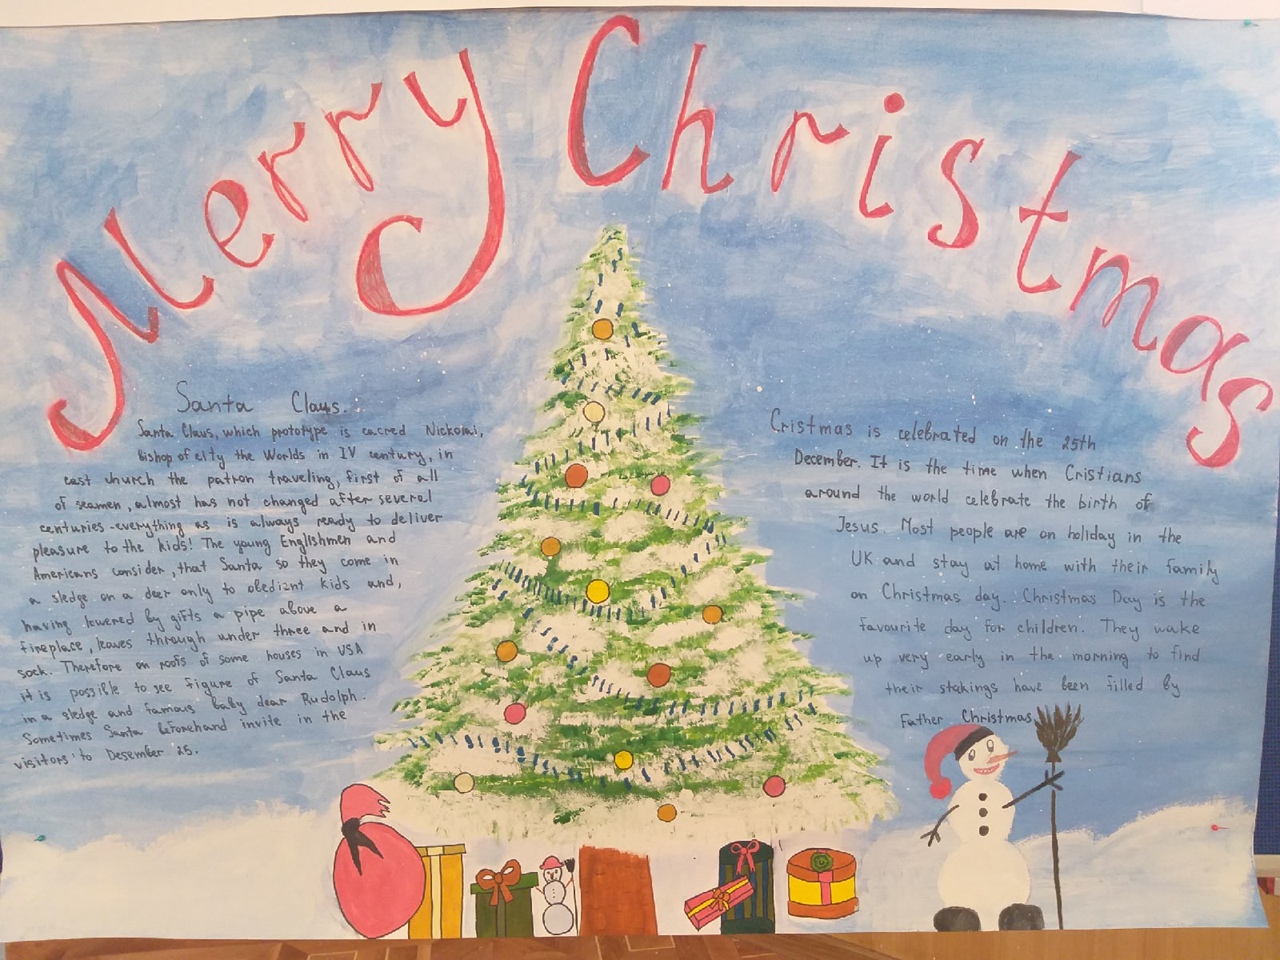 Merry Christmas
Santa Claus.
Santa Claus, which prototype is cacred Nickolai,
bishop of city the Worlds in IV century, in
east church the patron traveling, first of all
of seamen, almost has not changed after several
centuries-everything as is always ready to deliver
pleasure to the kids! The young Englishmen and
Americans consider, that Santa so they come in
a sledge on a deer only to obedient kids and,
having lowered by gifts a pipe above a
fireplace, leaves through under three and in
sock. Therefore on roofs of some houses in USA
it is possible to see figure of Santa Claus
in a sledge and famous baby dear Rudolph.
Sometimes Santa beforehand invite in the
visitors to Desember 25.
Cristmas is celebrated on the 25th
December. It is the time when Cristians
around the world celebrate the birth of
Jesus. Most people are on holiday in the
UK and stay at home with their family
on Christmas day. Christmas Day is the
favourite day for children. They wake
up very early in the morning to find
their stokings have been filled by
Father Christmas